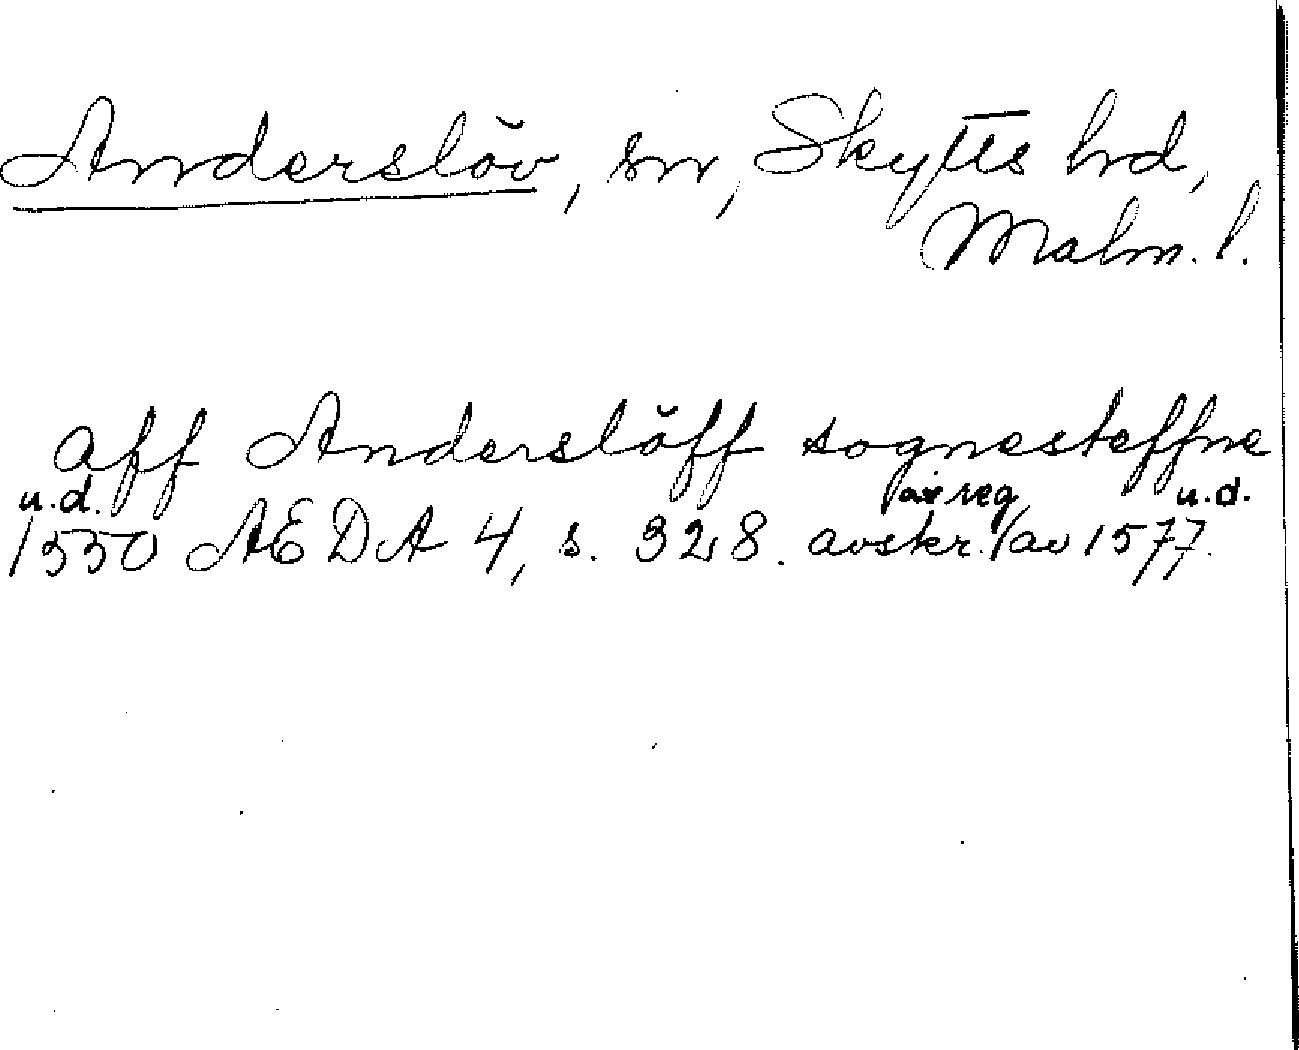 Anderslöv, sn, Skytts hd,
Malm. l.
aff Anderslöff sognesteffne
u.d. av reg. u.d.
1550 AEDA 4, s. 328. avskr. av 1577.